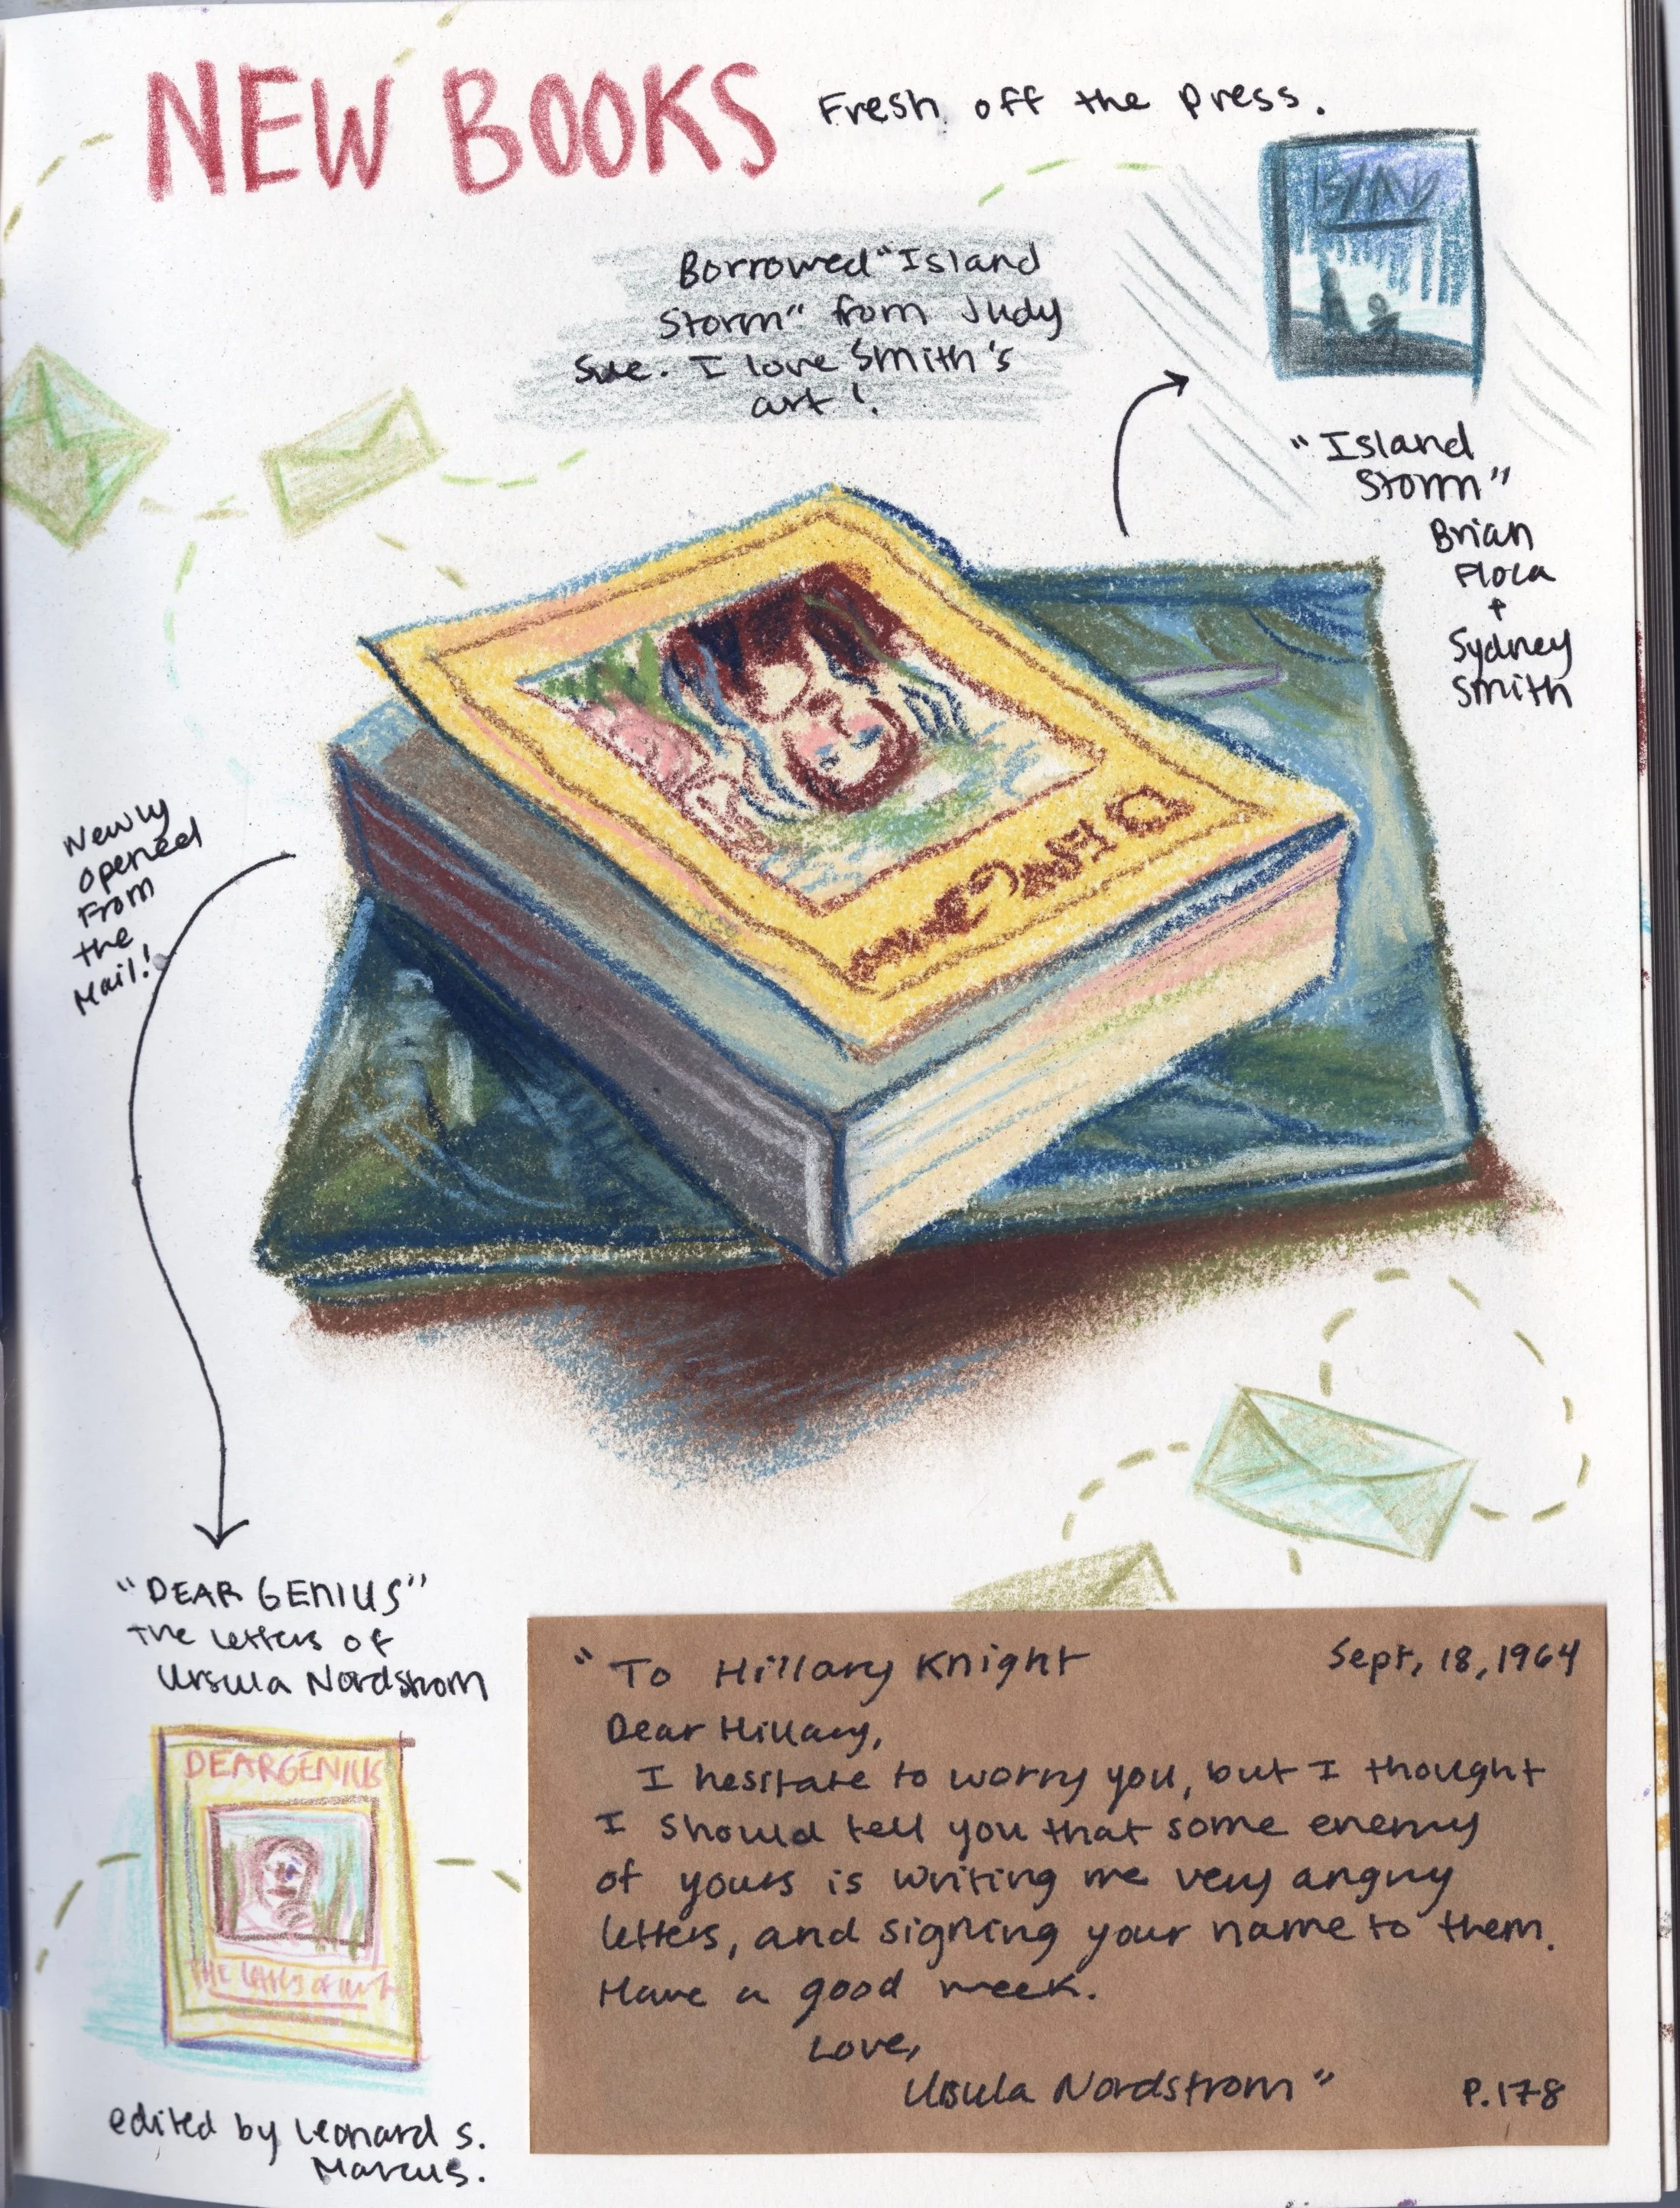 NEW BOOKS Fresh off the press.
Borrowed "Island
Storm" from Judy
Sue. I love Smith's
art!
"Island
Storm"
Brian
Floca
+
Sydney
Smith
Newly
opened
From
the
Mail!
"DEAR GENIUS"
The letters of
Ursula Nordstrom
DEAR GENIUS
THE
edited by Leonard S.
Marcus.
"To Hillary Knight Sept, 18, 1964
Dear Hillary,
I hesitate to worry you, but I thought
I should tell you that some enemy
of yours is writing me very angry
letters, and signing your name to them.
Have a good week.
Love,
Ursula Nordstrom" P.178